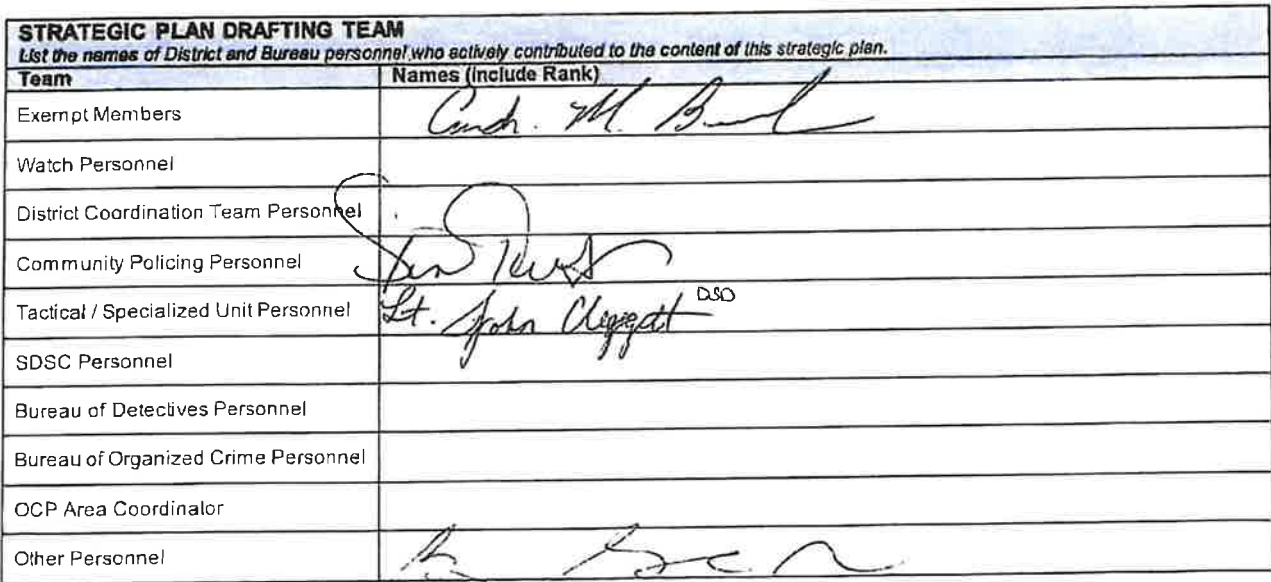 STRATEGIC PLAN DRAFTING TEAM
List the names of District and Bureau personnel who actively contributed to the content of this strategic plan.
Team Names (include Rank)
Exempt Members Cmdr. M.
Watch Personnel
District Coordination Team Personnel
Community Policing Personnel
Tactical / Specialized Unit Personnel Lt. John DSD
SDSC Personnel
Bureau of Detectives Personnel
Bureau of Organized Crime Personnel
OCP Area Coordinator
Other Personnel